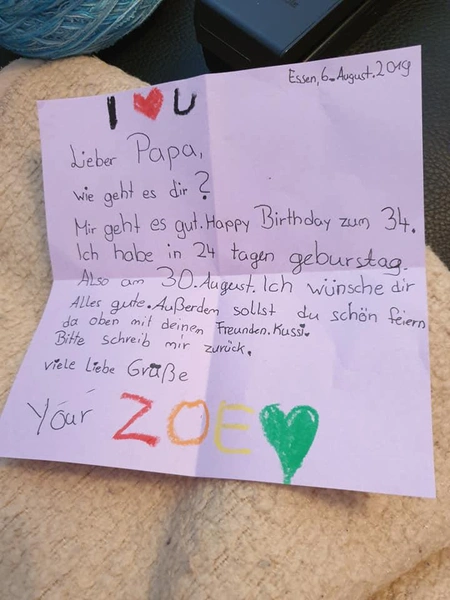 Essen, 6. August. 2019
I ❤ U
Lieber Papa,
wie geht es dir?
Mir geht es gut. Happy Birthday zum 34.
Ich habe in 24 tagen geburstag.
Also am 30. August. Ich wünsche dir
Alles gute. Außerdem sollst du schön feiern
da oben mit deinen Freunden. Kussi.
Bitte schreib mir zurück.
viele liebe Grüße
Your ZOE